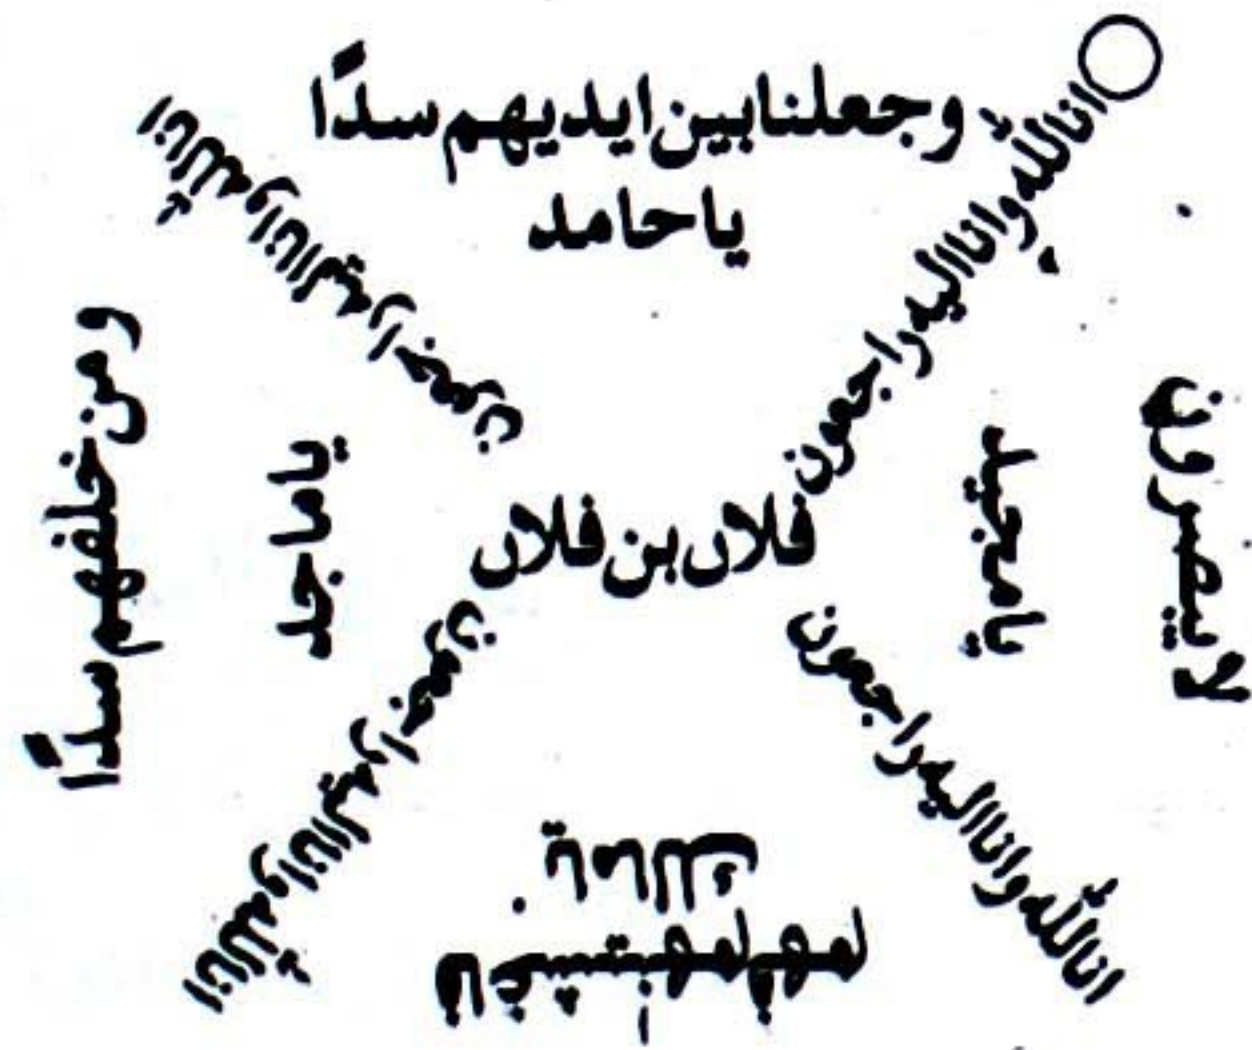 وجعلنا بين ايديهم سدًا
يا حامد
انا لله وانا اليه راجعون
انا لله وانا اليه راجعون
ومن خلفهم سدًا
يا ماجد
فلاں بن فلاں
يا مجيد
لا يبصرون
انا لله وانا اليه راجعون
انا لله وانا اليه راجعون
يا مالك
فاغشينهم فهم